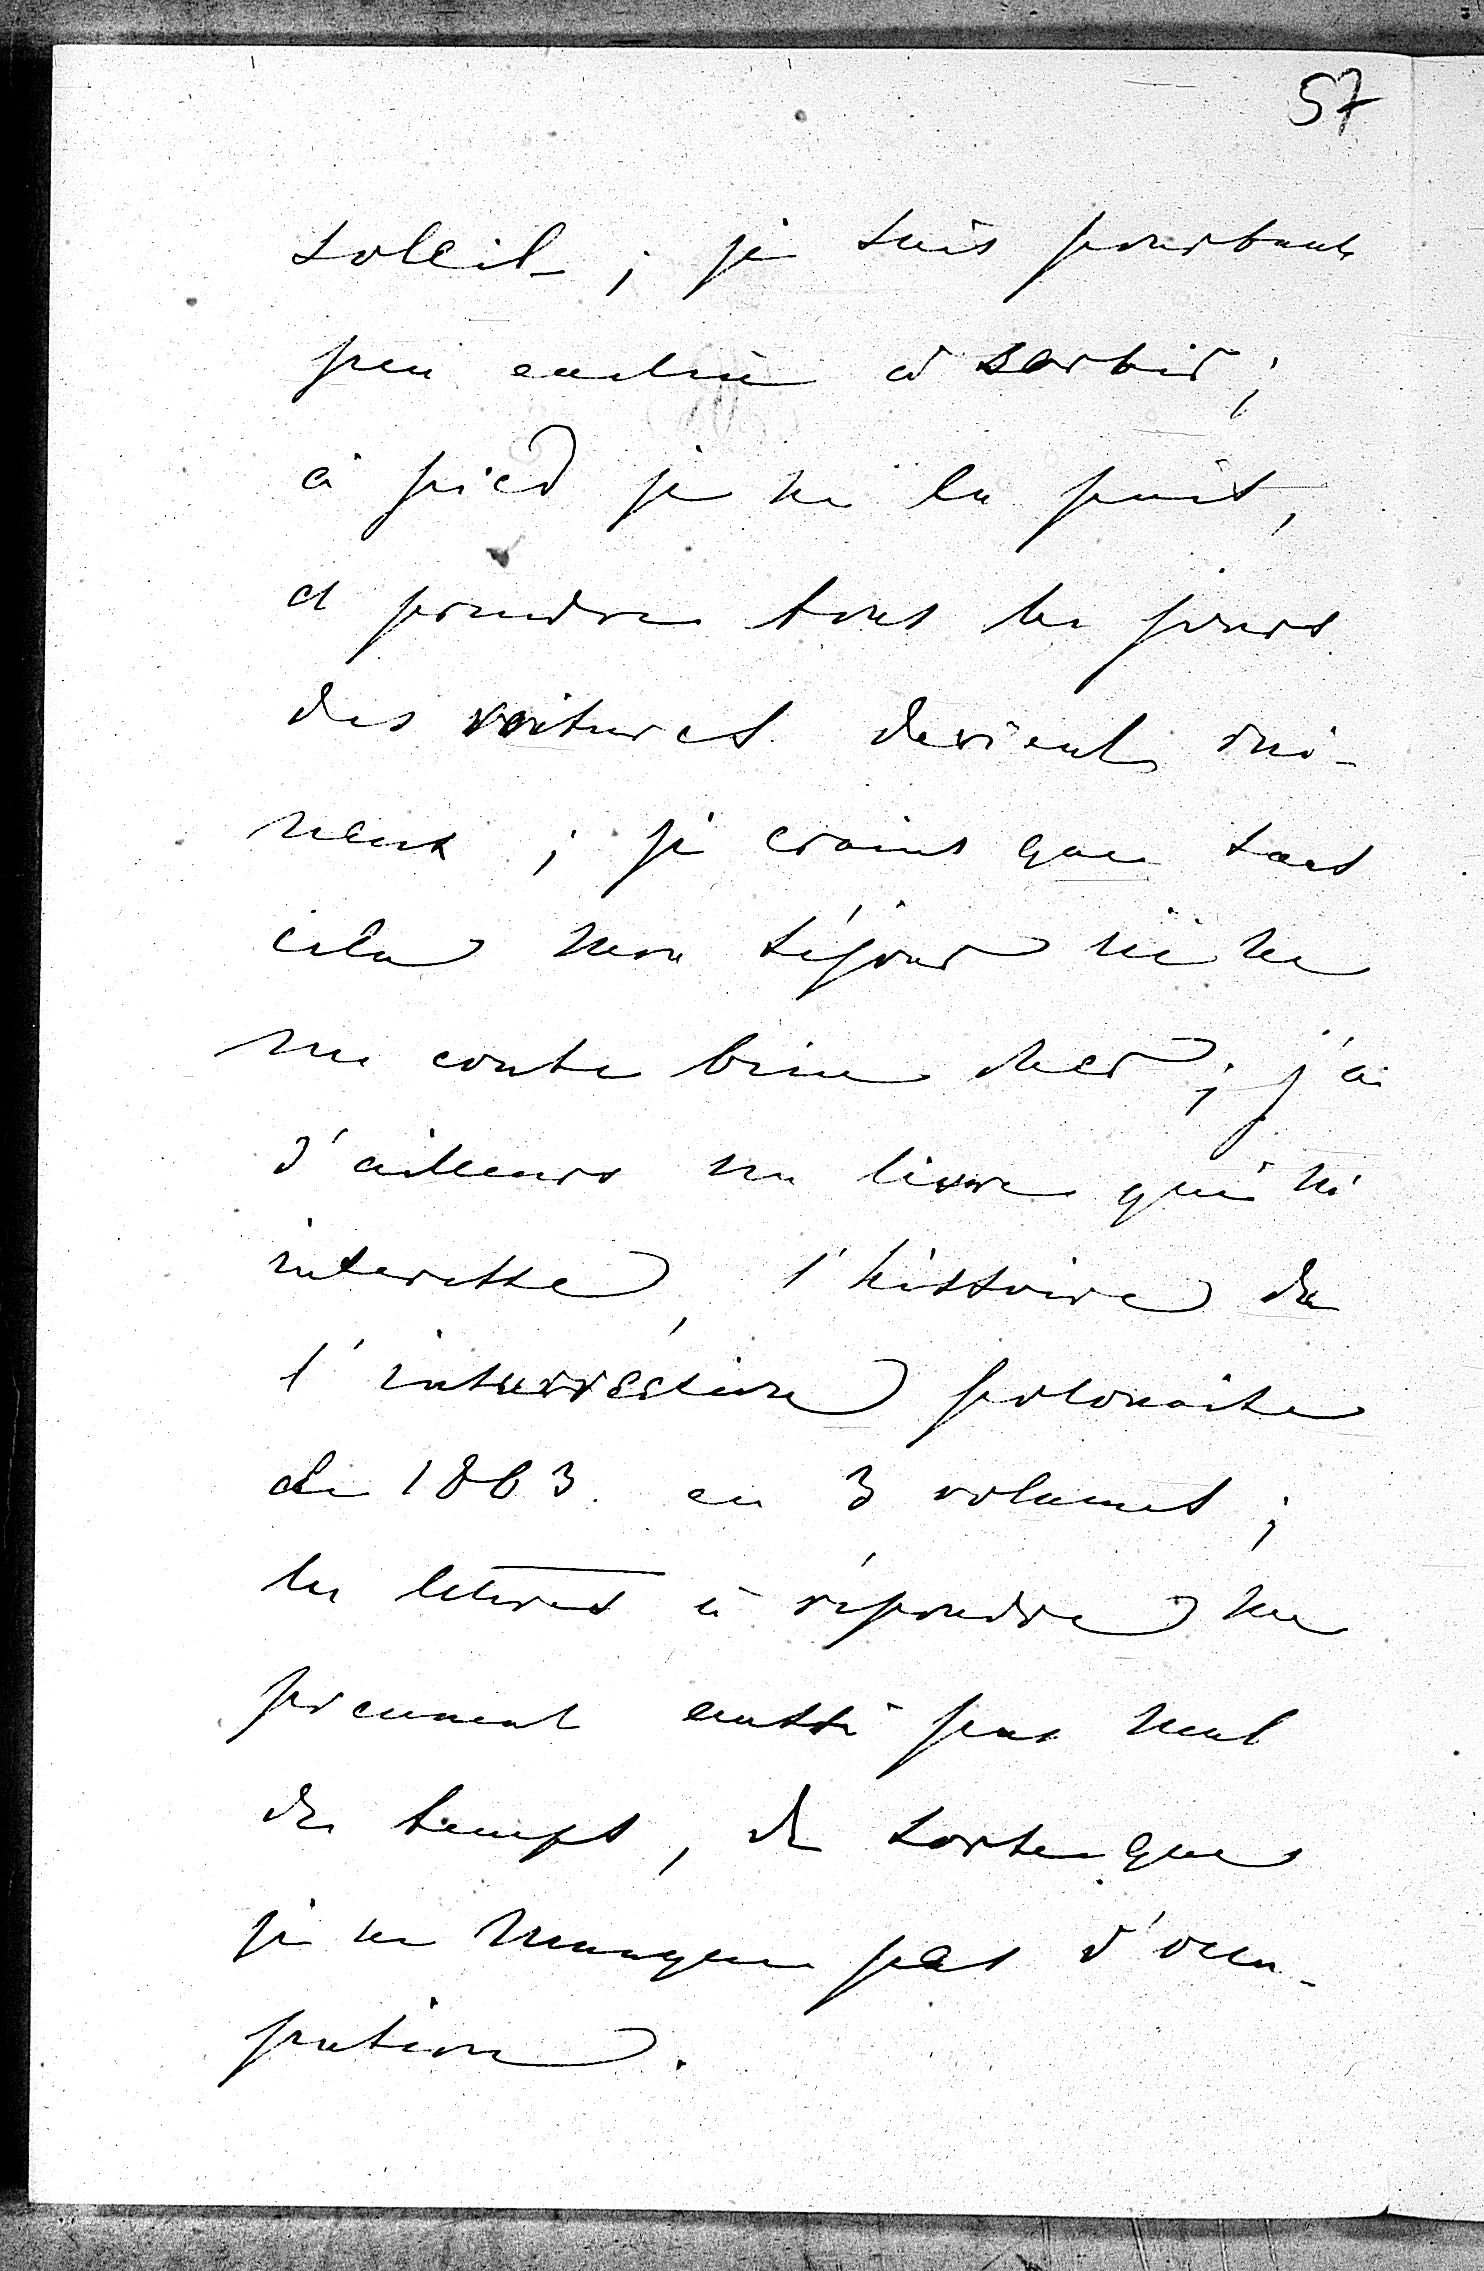 57
soleil ; je suis pourtant
peu enclin à sortir ;
à pied je ne le puis,
et prendre tous les jours
des voitures devient rui-
neux ; je crains que sans
cela mon séjour ici ne
me coute bien cher ; j'ai
d'ailleurs un livre qui m'
interesse, l'histoire de
l'insurrection polonaise
de 1863 en 3 volumes ;
les lettres à répondre me
prennent aussi pas mal
de temps, de sorte que
je ne manque pas d'occu-
pation.